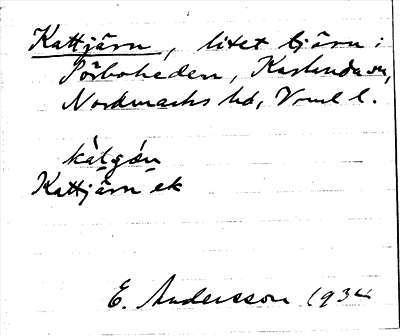 Kattjärn, litet tjärn i
Pörboheden, Karlanda sn,
Nordmarks hd, Vrml l.
kàtgǽn
Kattjärn ek
E. Andersson 1934